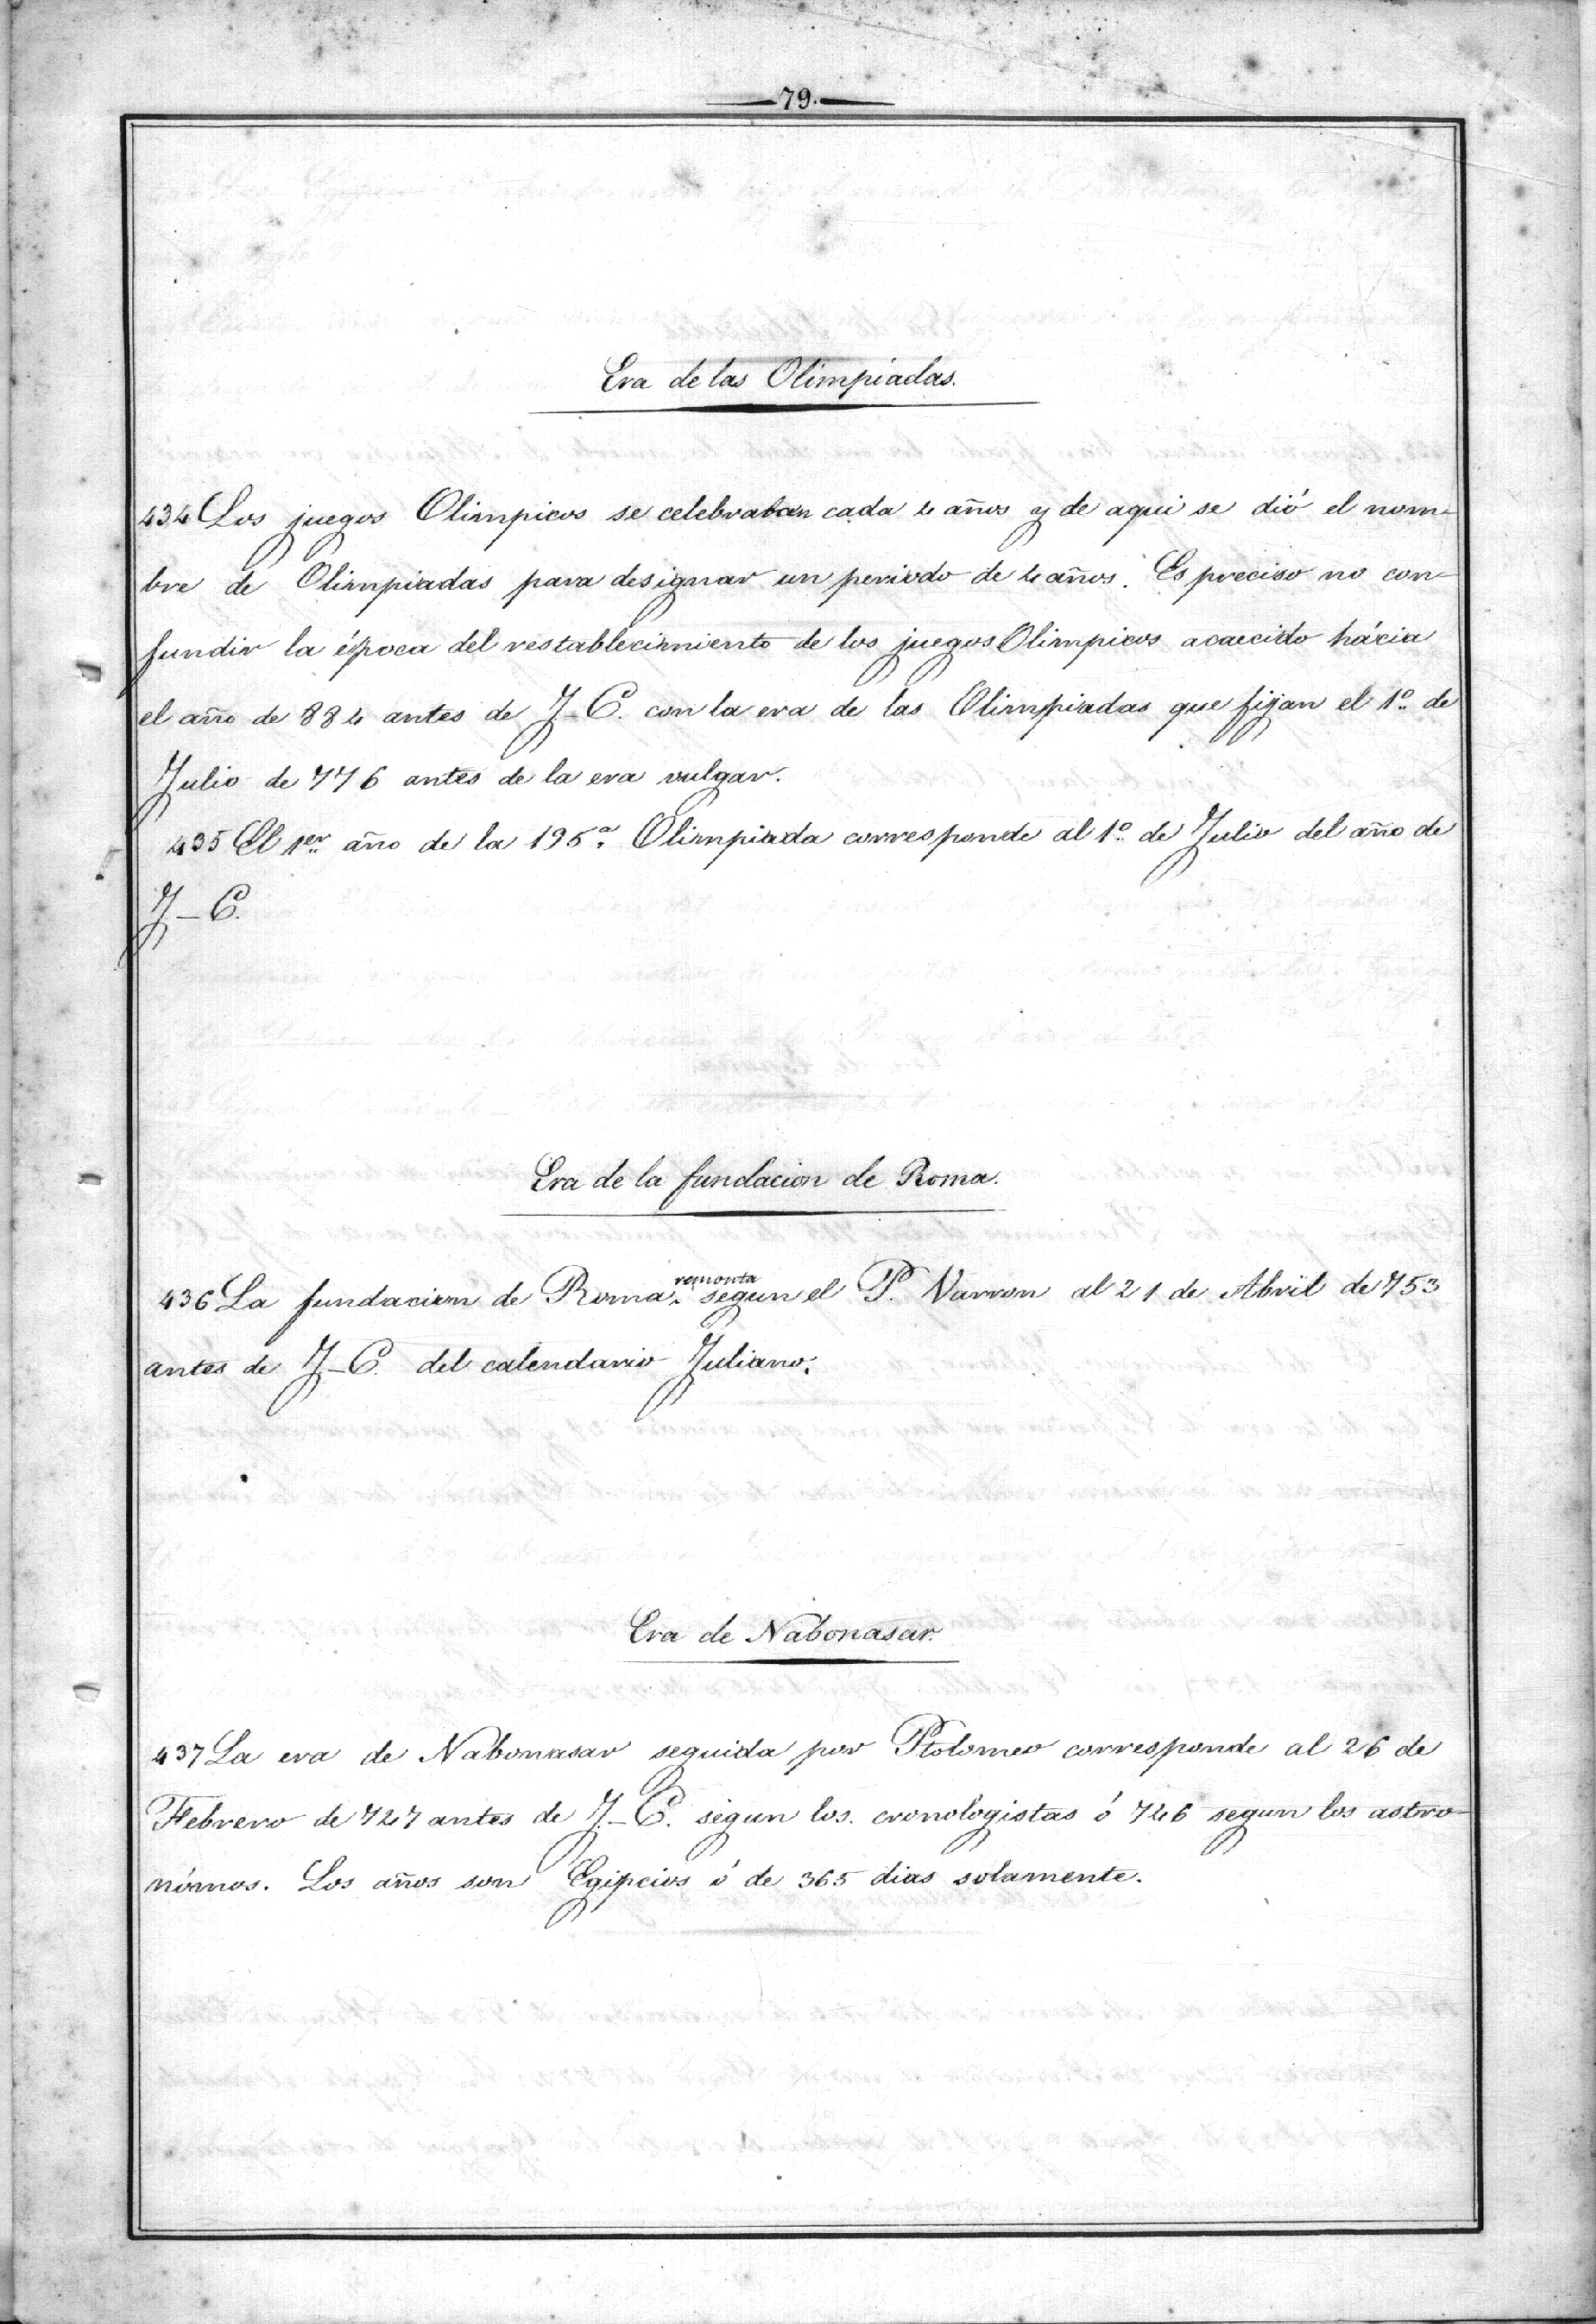 79.
Era de las Olimpiadas.
434 Los juegos Olimpicos se celebraban cada 4 años y de aqui se dió el nom-
bre de Olimpiadas para designar un periodo de 4 años. Es preciso no con-
fundir la época del restablecimiento de los juegos Olimpicos acaecido hácia
el año de 884 antes de J-C. con la era de las Olimpiadas que fijan el 1º de
Julio de 776 antes de la era vulgar.
435 El 1er año de la 195ª Olimpiada corresponde al 1º de Julio del año de
J-C.
Era de la fundacion de Roma.
remonta
436 La fundacion de Roma segun el P. Varron al 21 de Abril de 753
antes de J-C. del calendario Juliano.
Era de Nabonasar.
437 La era de Nabonasar seguida por Ptolomeo corresponde al 26 de
Febrero de 747 antes de J.-C. segun los. cronólogistas ó 746 segun los astro-
nómos. Los años son Egipcios ó de 365 dias solamente.